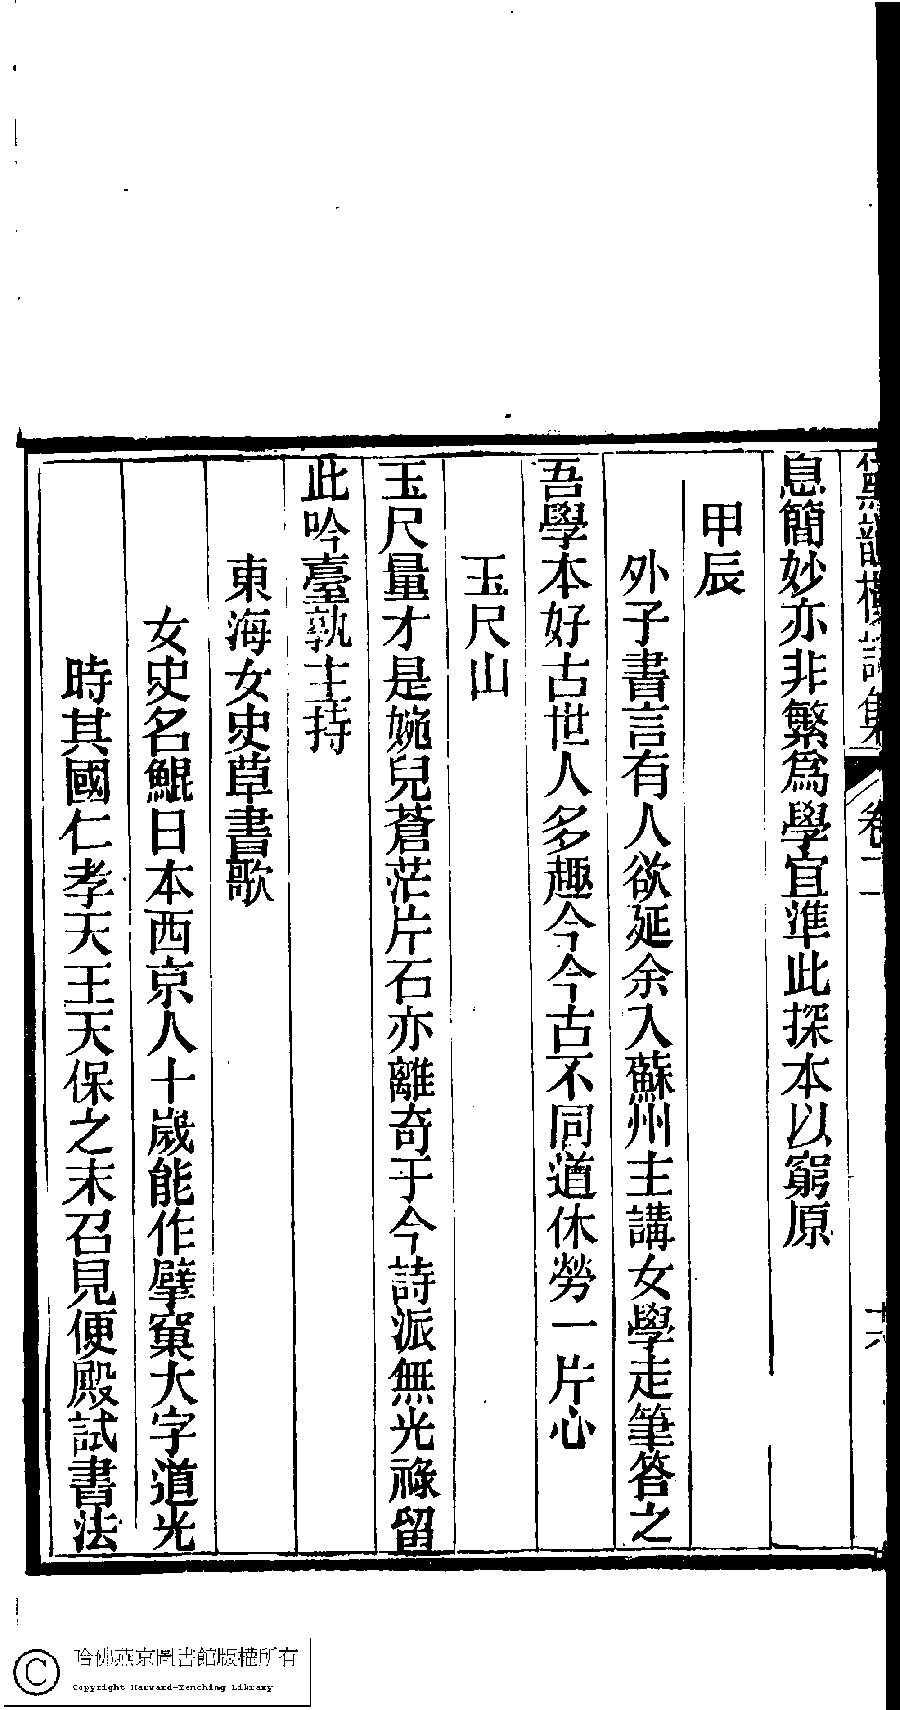 黛韻樓詩集 卷二 十六
息簡妙亦非繁爲學宜準此探本以窮原
甲辰
外子書言有人欲延余入蘇州主講女學走筆答之
吾學本好古世人多趣今今古不同道休勞一片心
玉尺山
玉尺量才是婉兒蒼茫片石亦離奇于今詩派無光祿留
此吟臺孰主持
東海女史草書歌
女史名鯤日本西京人十歲能作擘窠大字道光
時其國仁孝天王天保之末召見便殿試書法
哈佛燕京圖書館版權所有
Copyright Harvard-Yenching Library